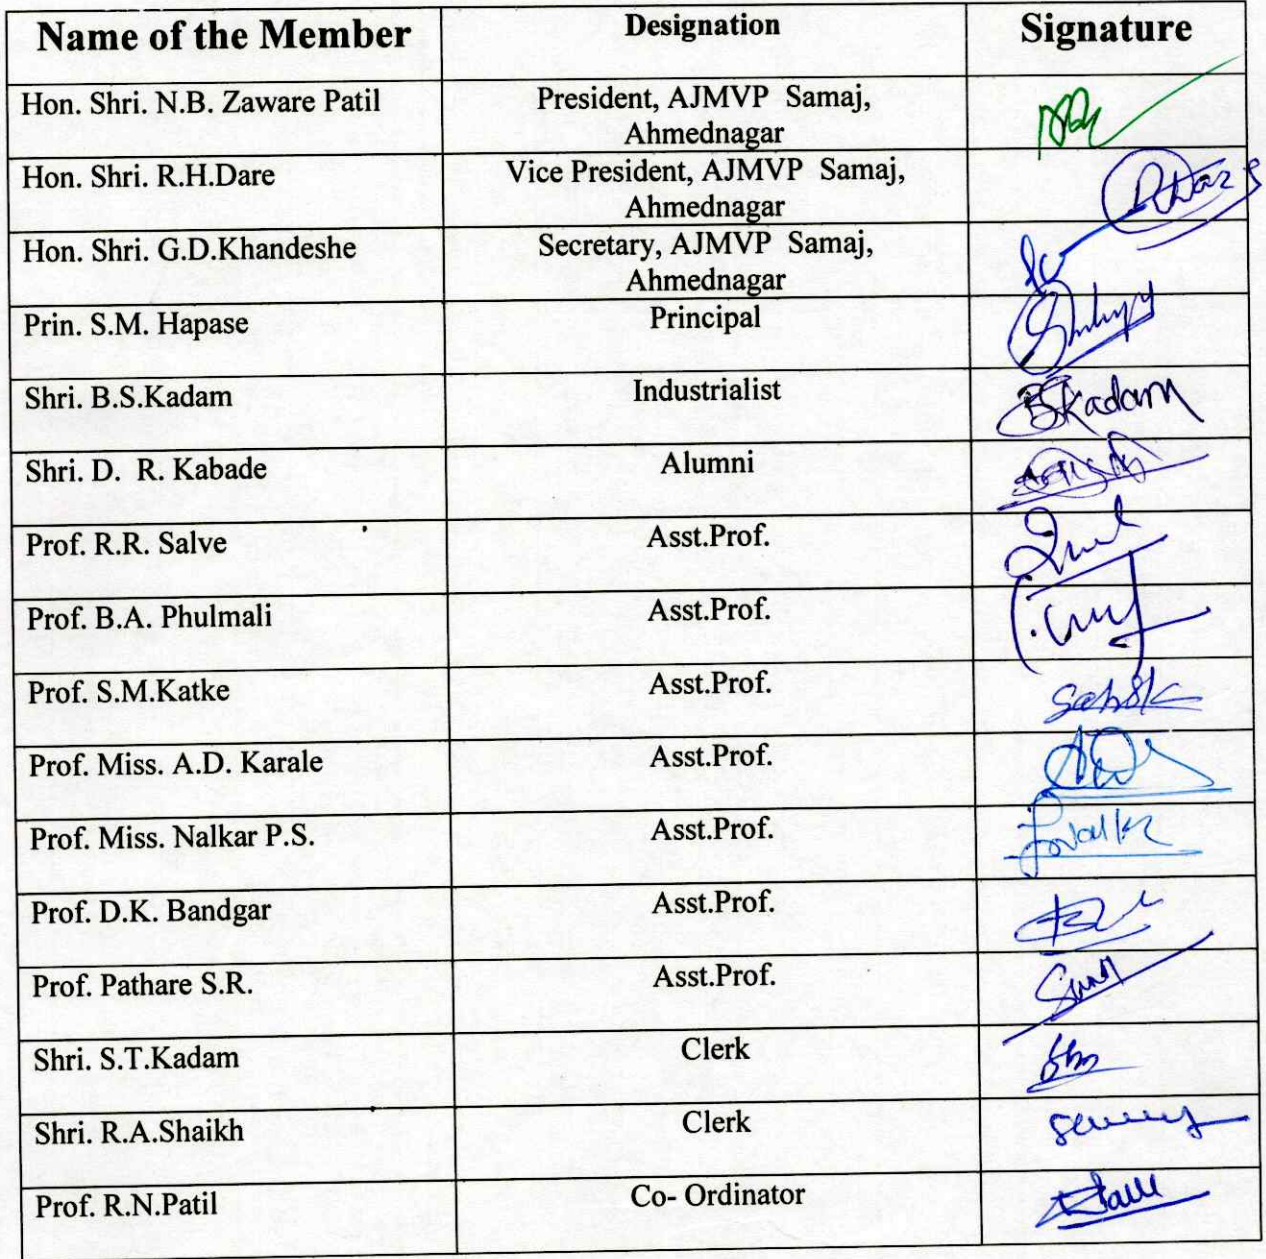 Name of the Member Designation Signature
Hon. Shri. N.B. Zaware Patil President, AJMVP Samaj,
Ahmednagar
Hon. Shri. R.H.Dare Vice President, AJMVP Samaj,
Ahmednagar
Hon. Shri. G.D.Khandeshe Secretary, AJMVP Samaj,
Ahmednagar
Prin. S.M. Hapase Principal
Shri. B.S.Kadam Industrialist BSKadam
Shri. D. R. Kabade Alumni
Prof. R.R. Salve Asst.Prof.
Prof. B.A. Phulmali Asst.Prof.
Prof. S.M.Katke Asst.Prof.
Prof. Miss. A.D. Karale Asst.Prof.
Prof. Miss. Nalkar P.S. Asst.Prof.
Prof. D.K. Bandgar Asst.Prof.
Prof. Pathare S.R. Asst.Prof.
Shri. S.T.Kadam Clerk
Shri. R.A.Shaikh Clerk
Prof. R.N.Patil Co- Ordinator